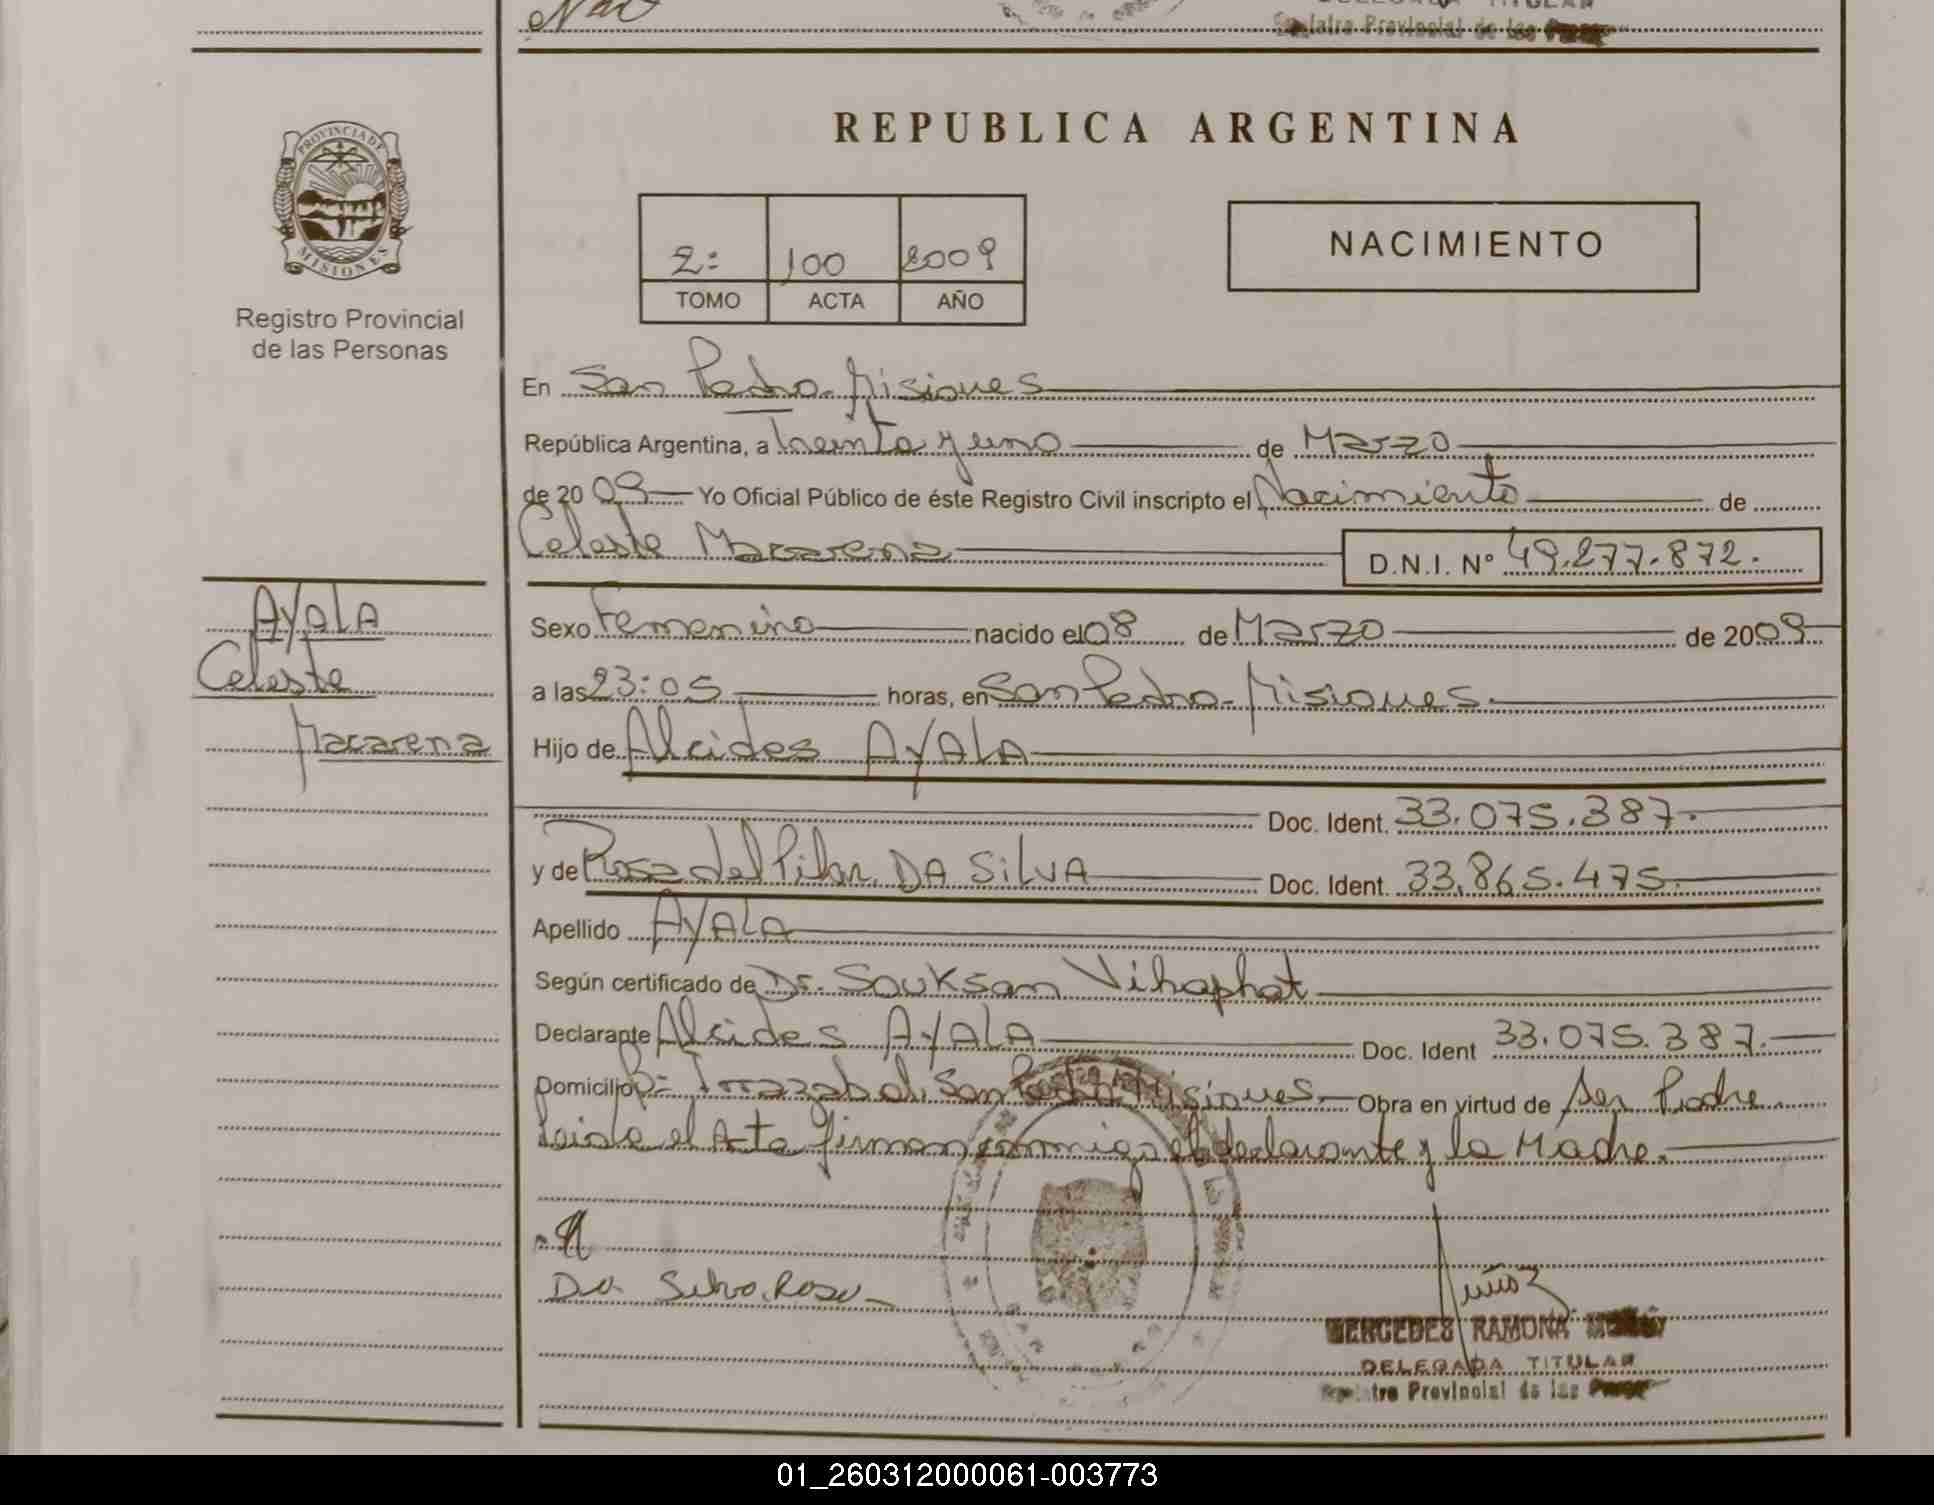 Registro Provincial de las
PROVINCIA DE
MISIONES
Registro Provincial
de las Personas
REPUBLICA ARGENTINA
2: 100 2009
TOMO ACTA AÑO
NACIMIENTO
En San Pedro - Misiones
República Argentina, a treinta y uno de Marzo
de 2009 Yo Oficial Público de éste Registro Civil inscripto el Nacimiento de
Celeste Macarena D.N.I. Nº 49.277.872.
AYALA
Celeste
Macarena
Sexo Femenino nacido el 08 de Marzo de 2009
a las 23:05 horas, en San Pedro - Misiones.
Hijo de Alcides AYALA
Doc. Ident. 33.075.387.
y de Rosa del Pilar DA SILVA Doc. Ident. 33.865.475.
Apellido AYALA
Según certificado de Dr. Souksan Vihaphat
Declarante Alcides AYALA Doc. Ident 33.075.387.
Domicilio Bº Irrazabal, San Pedro Misiones Obra en virtud de Ser Padre
Leida el Acta firman conmigo el declarante y la Madre.
Da Silva Rosa
MERCEDES RAMONA
DELEGADA TITULAR
Registro Provincial de las
01_260312000061-003773